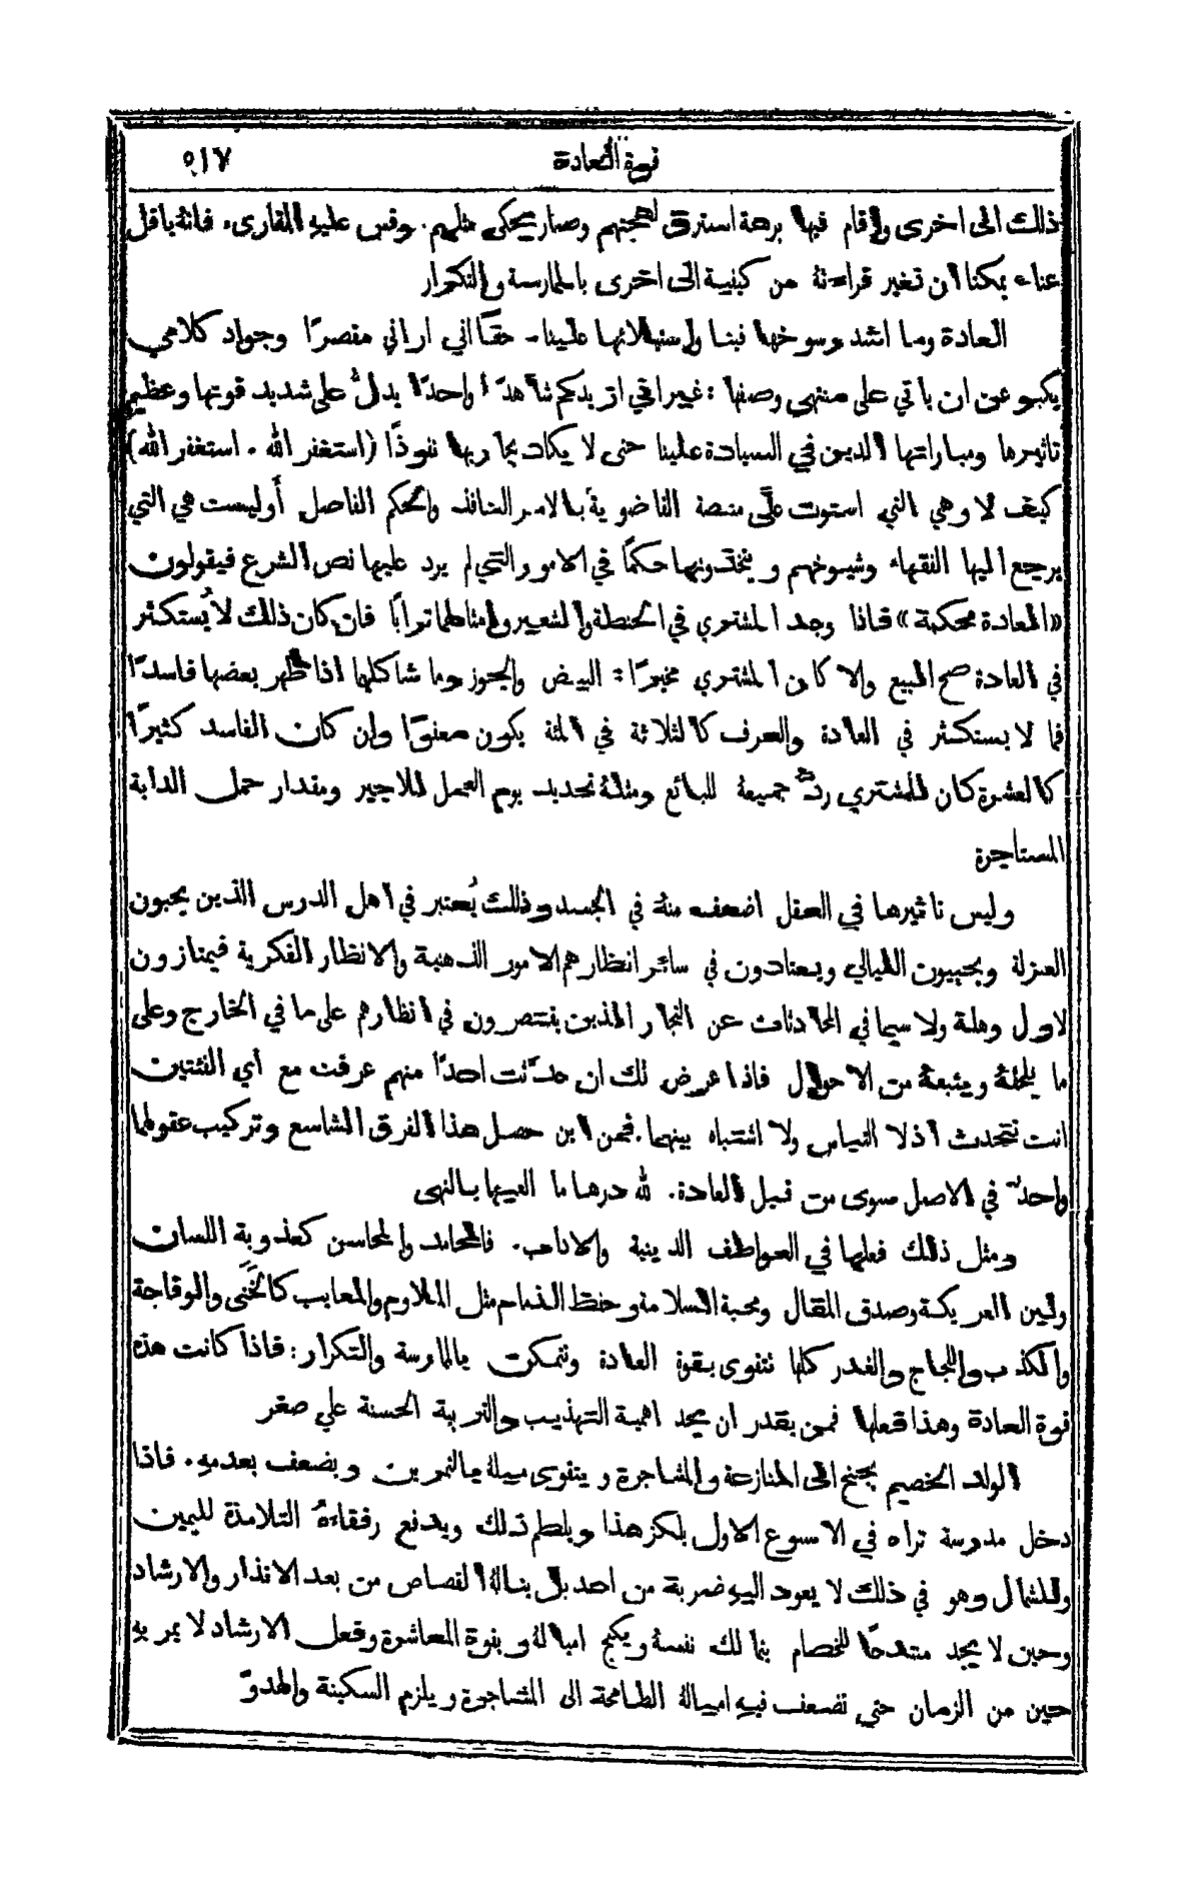 قوة العادة ٥١٧
ذلك الى اخرى واقام فيها برهة استرق لهجتهم وصار يحكي مثلهم. وقس عليهِ القارىء فانهُ باقل
عناء يمكنا ان تغير قراءتهُ من كيفية الى اخرى بالممارسة والتكرار
العادة وما اشد رسوخها فينا واستيلائها علينا. حقًا اني اراني مقصرًا وجواد كلامي
يكبو عن ان ياتي على منتهى وصفها: غير اني ازيدكم شاهدًا واحدًا يدلُّ على شديد قوتها وعظيم
تاثيرها ومباراتها الدين في السيادة علينا حتى لا يكاد يجاريها نفوذًا (استغفر الله. استغفر الله)
كيف لا وهي التي استوت على منصة القاضوية بالامر النافذ والحكم الفاصل أوليست هي التي
يرجع اليها الفقهاء وشيوخهم ويتخذونها حكمًا في الامور التي لم يرد عليها نص الشرع فيقولون
«العادة محكمة» فاذا وجد المشتري في الحنطة والشعير وامثالهما ترابًا فان كان ذلك لا يُستكثر
في العادة صح المبيع والا كان المشتري مخيرًا: البيض والجوز وما شاكلها اذا ظهر بعضها فاسدًا
فما لا يستكثر في العادة والعرف كالثلاثة في المئة يكون معفوًا وان كان الفاسد كثيرًا
كالعشرة كان للمشتري ردُّ جميعهِ للبائع ومثلهُ تحديد يوم العمل للاجير ومقدار حمل الدابة
المستاجرة
وليس تاثيرها في العقل اضعف منهُ في الجسد وذلك يُعتبر في اهل الدرس الذين يحبون
العزلة ويحييون الليالي ويعتادون في سائر انظارهم الامور الذهنية والانظار الفكرية فيمتازون
لاول وهلة ولا سيما في المحادثات عن التجار الذين يقتصرون في انظارهم على ما في الخارج وعلى
ما يلحقهُ ويتبعهُ من الاحوال فاذا عرض لك ان حدَّثت احدًا منهم عرفت مع أي الفئتين
انت تتحدث اذ لا التباس ولا اشتباه بينهما. فمن اين حصل هذا الفرق الشاسع وتركيب عقولهما
واحدٌ في الاصل سوى من قبل العادة. لله درها ما العبها بالنهى
ومثل ذلك فعلها في العواطف الدينية والاداب. فالمحامد والمحاسن كعذوبةِ اللسان
ولين العريكة وصدق المقال ومحبة السلامة وحفظ الذمام مثل الملاوم والمعايب كالخَنَى والوقاحة
والكذب واللجاج والغدر كلها تتقوى بقوة العادة وتتمكن بالمارسة والتكرار: فاذا كانت هذه
قوة العادة وهذا فعلها فمن يقدر ان يحد اهمية التهذيب والتربية الحسنة على صغر
الولد الخصيم يجنح الى المنازعة والمشاجرة ويتقوى ميلهُ بالتمرين ويضعف بعدمهِ. فاذا
دخل مدرسة تراه في الاسبوع الاول يلكز هذا ويلطم ذلك ويدفع رفقاءهُ التلامذة لليمين
وللشمال وهو في ذلك لا يعود اليهِ ضربة من احد بل ينالهُ القصاص من بعد الانذار والارشاد
وحين لا يجد منتدحًا للخصام يتمالك نفسهُ ويكبح اميالهُ وبقوة المعاشرة وفعل الارشاد لا يمر بهِ
حين من الزمان حتى تضعف فيهِ اميالهُ الطامحة الى المشاجرة ويلزم السكينة والهدوّ